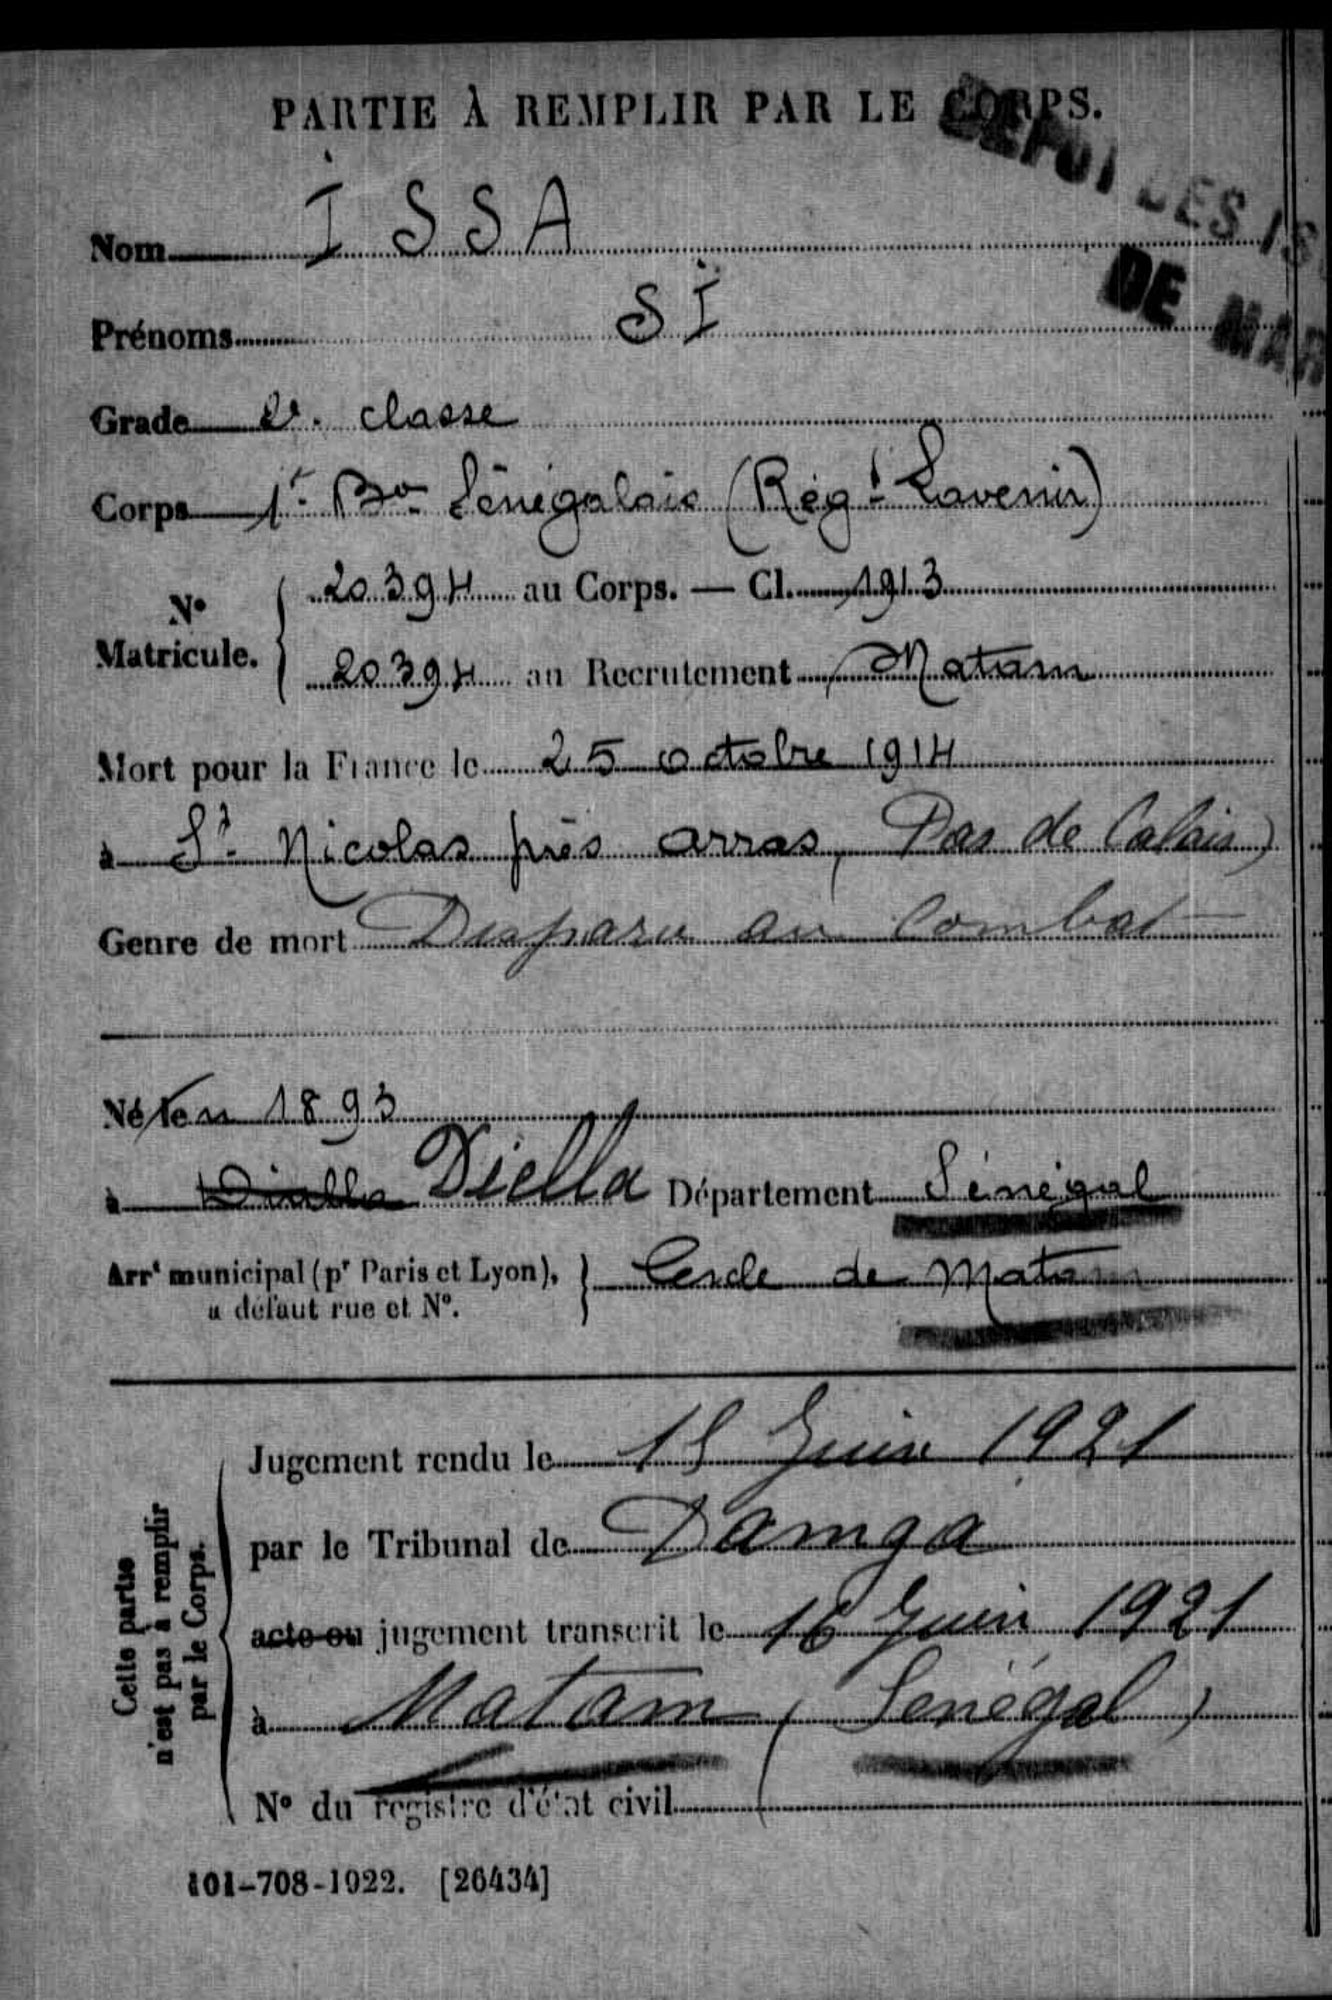 PARTIE À REMPLIR PAR LE CORPS.
DÉPÔT DES IS
DE MAR
Nom ISSA
Prénoms SI
Grade 2e. classe
Corps 1r. Bon Sénégalais (Régt Lavenir)
No Matricule. 20394 au Corps. — Cl. 1913
20394 au Recrutement Matam
Mort pour la France le 25 octobre 1914
à St. Nicolas près arras, Pas de Calais)
Genre de mort Disparu au Combat
Né le en 1893
à Dialla Diella Département Sénégal
Arrt municipal (pr Paris et Lyon), à défaut rue et No. Cercle de Matam
Cette partie n'est pas à remplir par le Corps.
Jugement rendu le 15 Juin 1921
par le Tribunal de Damga
acte ou jugement transcrit le 16 Juin 1921
à Matam (Sénégal)
No du registre d'état civil
101-708-1922. [26434]